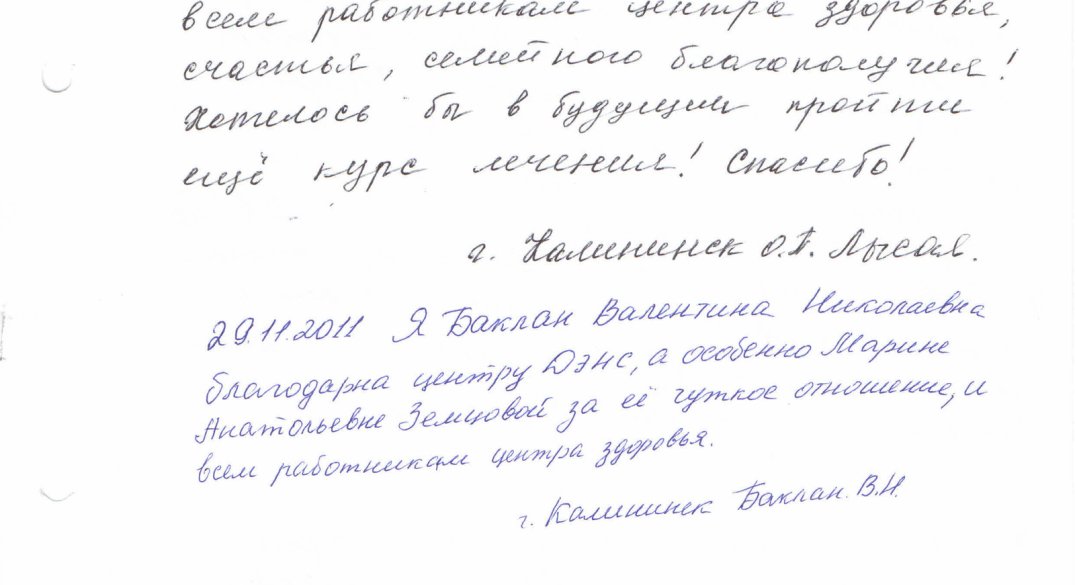 всем работникам центра здоровья,
счастья, семейного благополучия!
Хотелось бы в будущем пройти
ещё курс лечения! Спасибо!
г. Калининск О.П. Лысая.
29.11.2011 Я Баклан Валентина Николаевна
благодарна центру Дэнс, а особенно Марине
Анатольевне Земцовой за её чуткое отношение, и
всем работникам центра здоровья.
г. Калининск Баклан. В.Н.